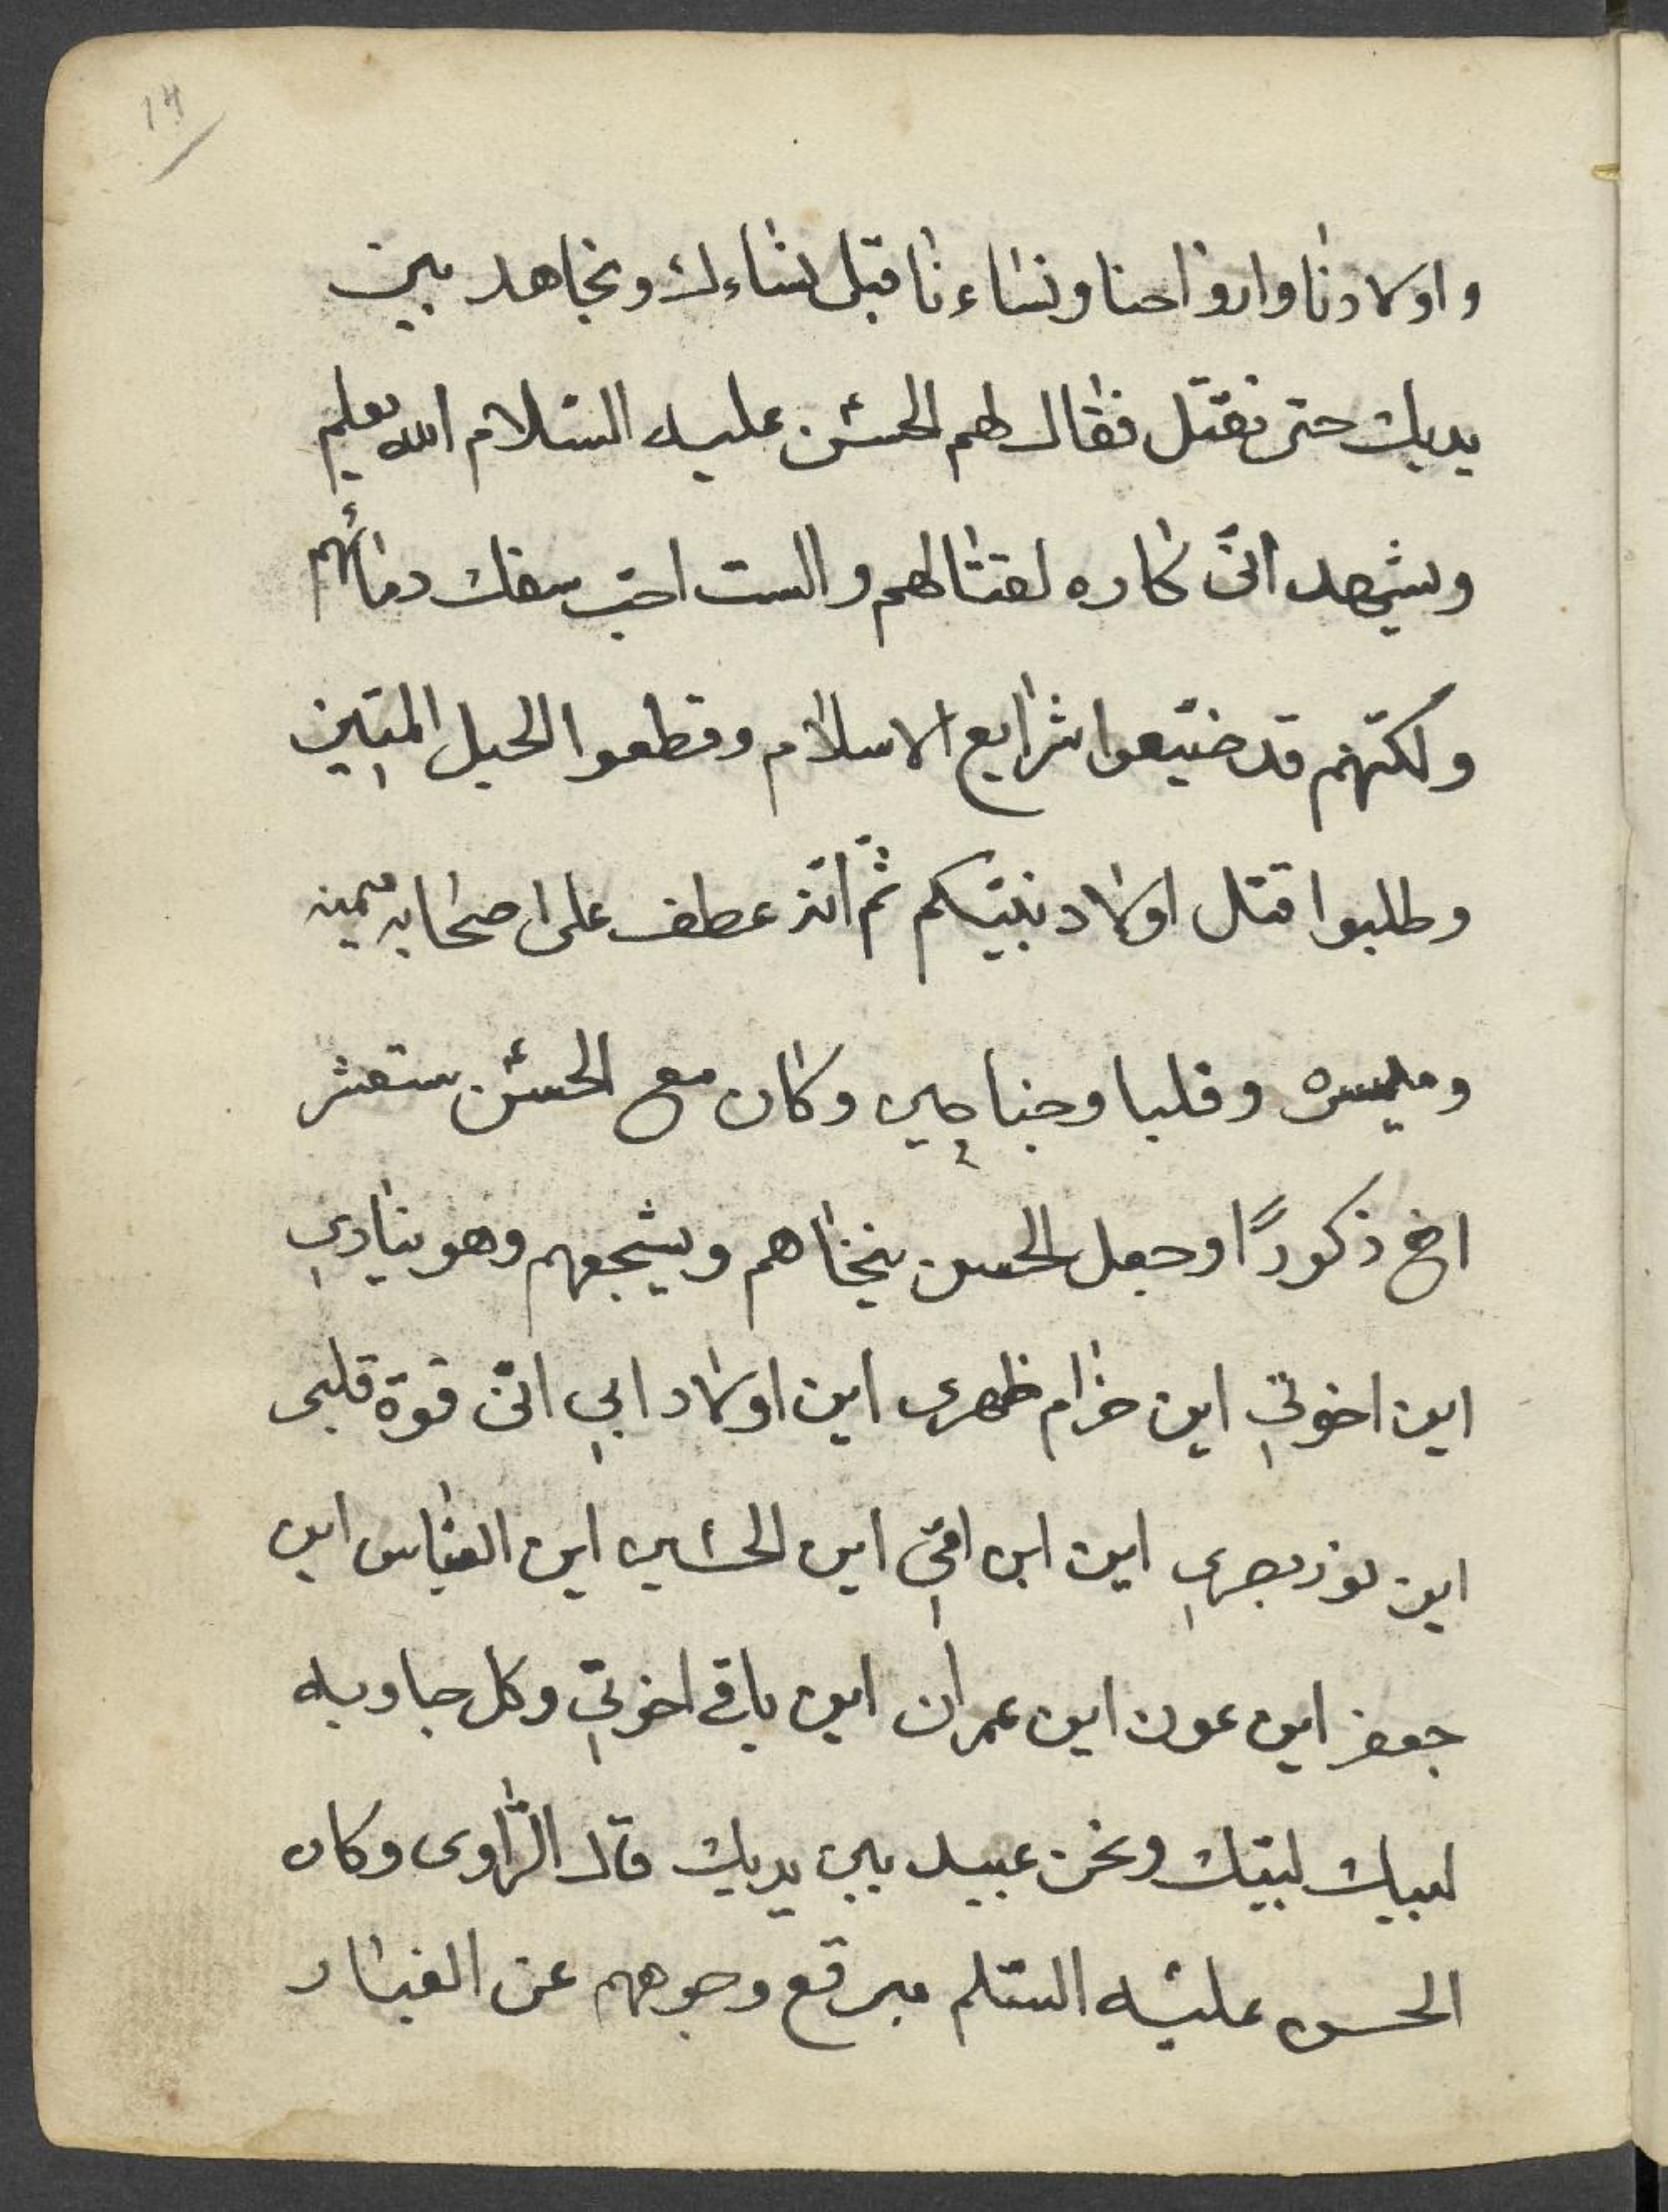 14
واولادنا وارواحنا ونساءنا قبل نساءك ونجاهد بين
يديك حتى نقتل فقال لهم الحسن عليه السّلام الله يعلم
ويشهد انّى كاره لقتالهم والست احبّ سفك دمائهم
ولكنّهم قد ضيّعوا شرايع الاسلام وقطعوا الحبل المتين
وطلبوا قتل اولاد نبيّكم ثمّ انّه عطف على اصحابه ميمنه
وميسره وقلبا وجناحين وكان مع الحسن ستعشر
اخ ذكورًا وجعل الحسن ينخاهم ويشجعهم وهو ينادي
اين اخوتي اين حزام ظهرى اين اولاد ابي انّى قوة قلبى
اين نور بصري اين ابن امّي اين الحسين اين العبّاس اين
جعفر اين عون اين عمران اين باقى اخوتي وكل جاوبه
لبيك لبّيك ونحن عبيد بين يديك قال الرّاوى وكان
الحسن عليه السّلم مبرقع وجوههم عن الغبار